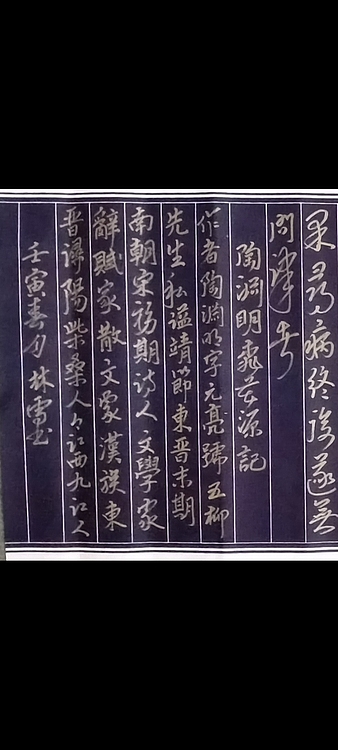 果尋病終後遂無
問津者
陶淵明桃花源記
作者陶淵明字元亮號五柳
先生私謚靖節東晉末期
南朝宋初期詩人文學家
辭賦家散文家漢族東
晉潯陽柴桑人今江西九江人
壬寅春月林雪書